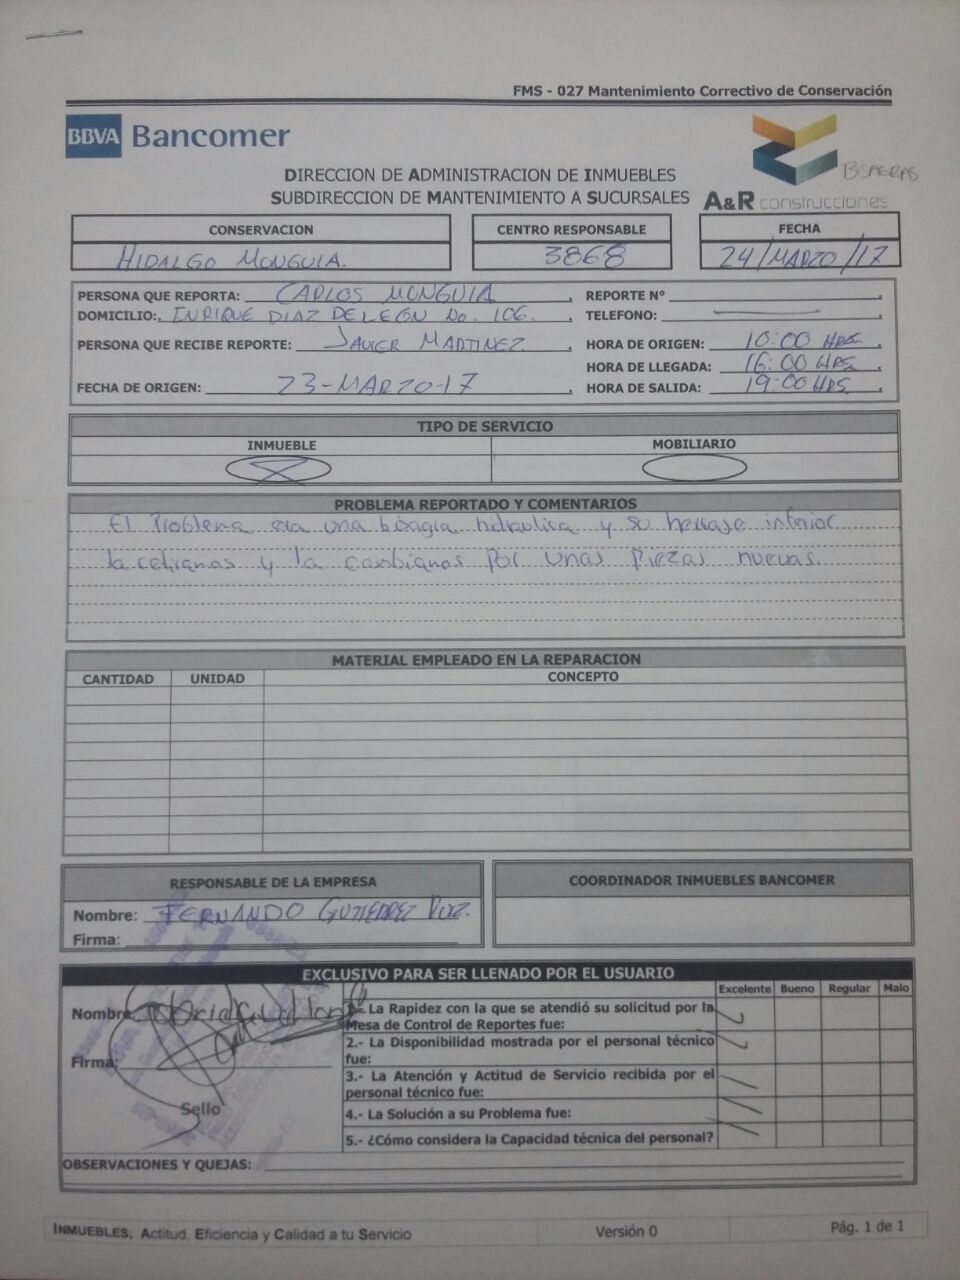 FMS - 027 Mantenimiento Correctivo de Conservación
BBVA Bancomer
BISAGRAS
DIRECCION DE ADMINISTRACION DE INMUEBLES
SUBDIRECCION DE MANTENIMIENTO A SUCURSALES
A&R construcciones
CONSERVACION CENTRO RESPONSABLE FECHA
HIDALGO MONGUIA. 3868 24/MARZO/17
PERSONA QUE REPORTA: CARLOS MONGUIA REPORTE Nº
DOMICILIO: ENRIQUE DIAZ DE LEON No. 106 TELEFONO:
PERSONA QUE RECIBE REPORTE: JAVIER MARTINEZ HORA DE ORIGEN: 10:00 HRS.
HORA DE LLEGADA: 16:00 HRS.
FECHA DE ORIGEN: 23-MARZO-17 HORA DE SALIDA: 19:00 HRS.
TIPO DE SERVICIO
INMUEBLE MOBILIARIO
PROBLEMA REPORTADO Y COMENTARIOS
El Problema era una bisagra hidraulica y su herraje inferior
la y la cambiamos por unas piezas nuevas.
MATERIAL EMPLEADO EN LA REPARACION
CANTIDAD UNIDAD CONCEPTO
RESPONSABLE DE LA EMPRESA COORDINADOR INMUEBLES BANCOMER
Nombre: FERNANDO GUTIERREZ RUIZ.
Firma:
EXCLUSIVO PARA SER LLENADO POR EL USUARIO
Excelente Bueno Regular Malo
Nombre: 1.- La Rapidez con la que se atendió su solicitud por la
Mesa de Control de Reportes fue:
2.- La Disponibilidad mostrada por el personal técnico
fue:
Firma: 3.- La Atención y Actitud de Servicio recibida por el
personal técnico fue:
Sello 4.- La Solución a su Problema fue:
5.- ¿Cómo considera la Capacidad técnica del personal?
OBSERVACIONES Y QUEJAS:
INMUEBLES; Actitud, Eficiencia y Calidad a tu Servicio Versión 0 Pág. 1 de 1